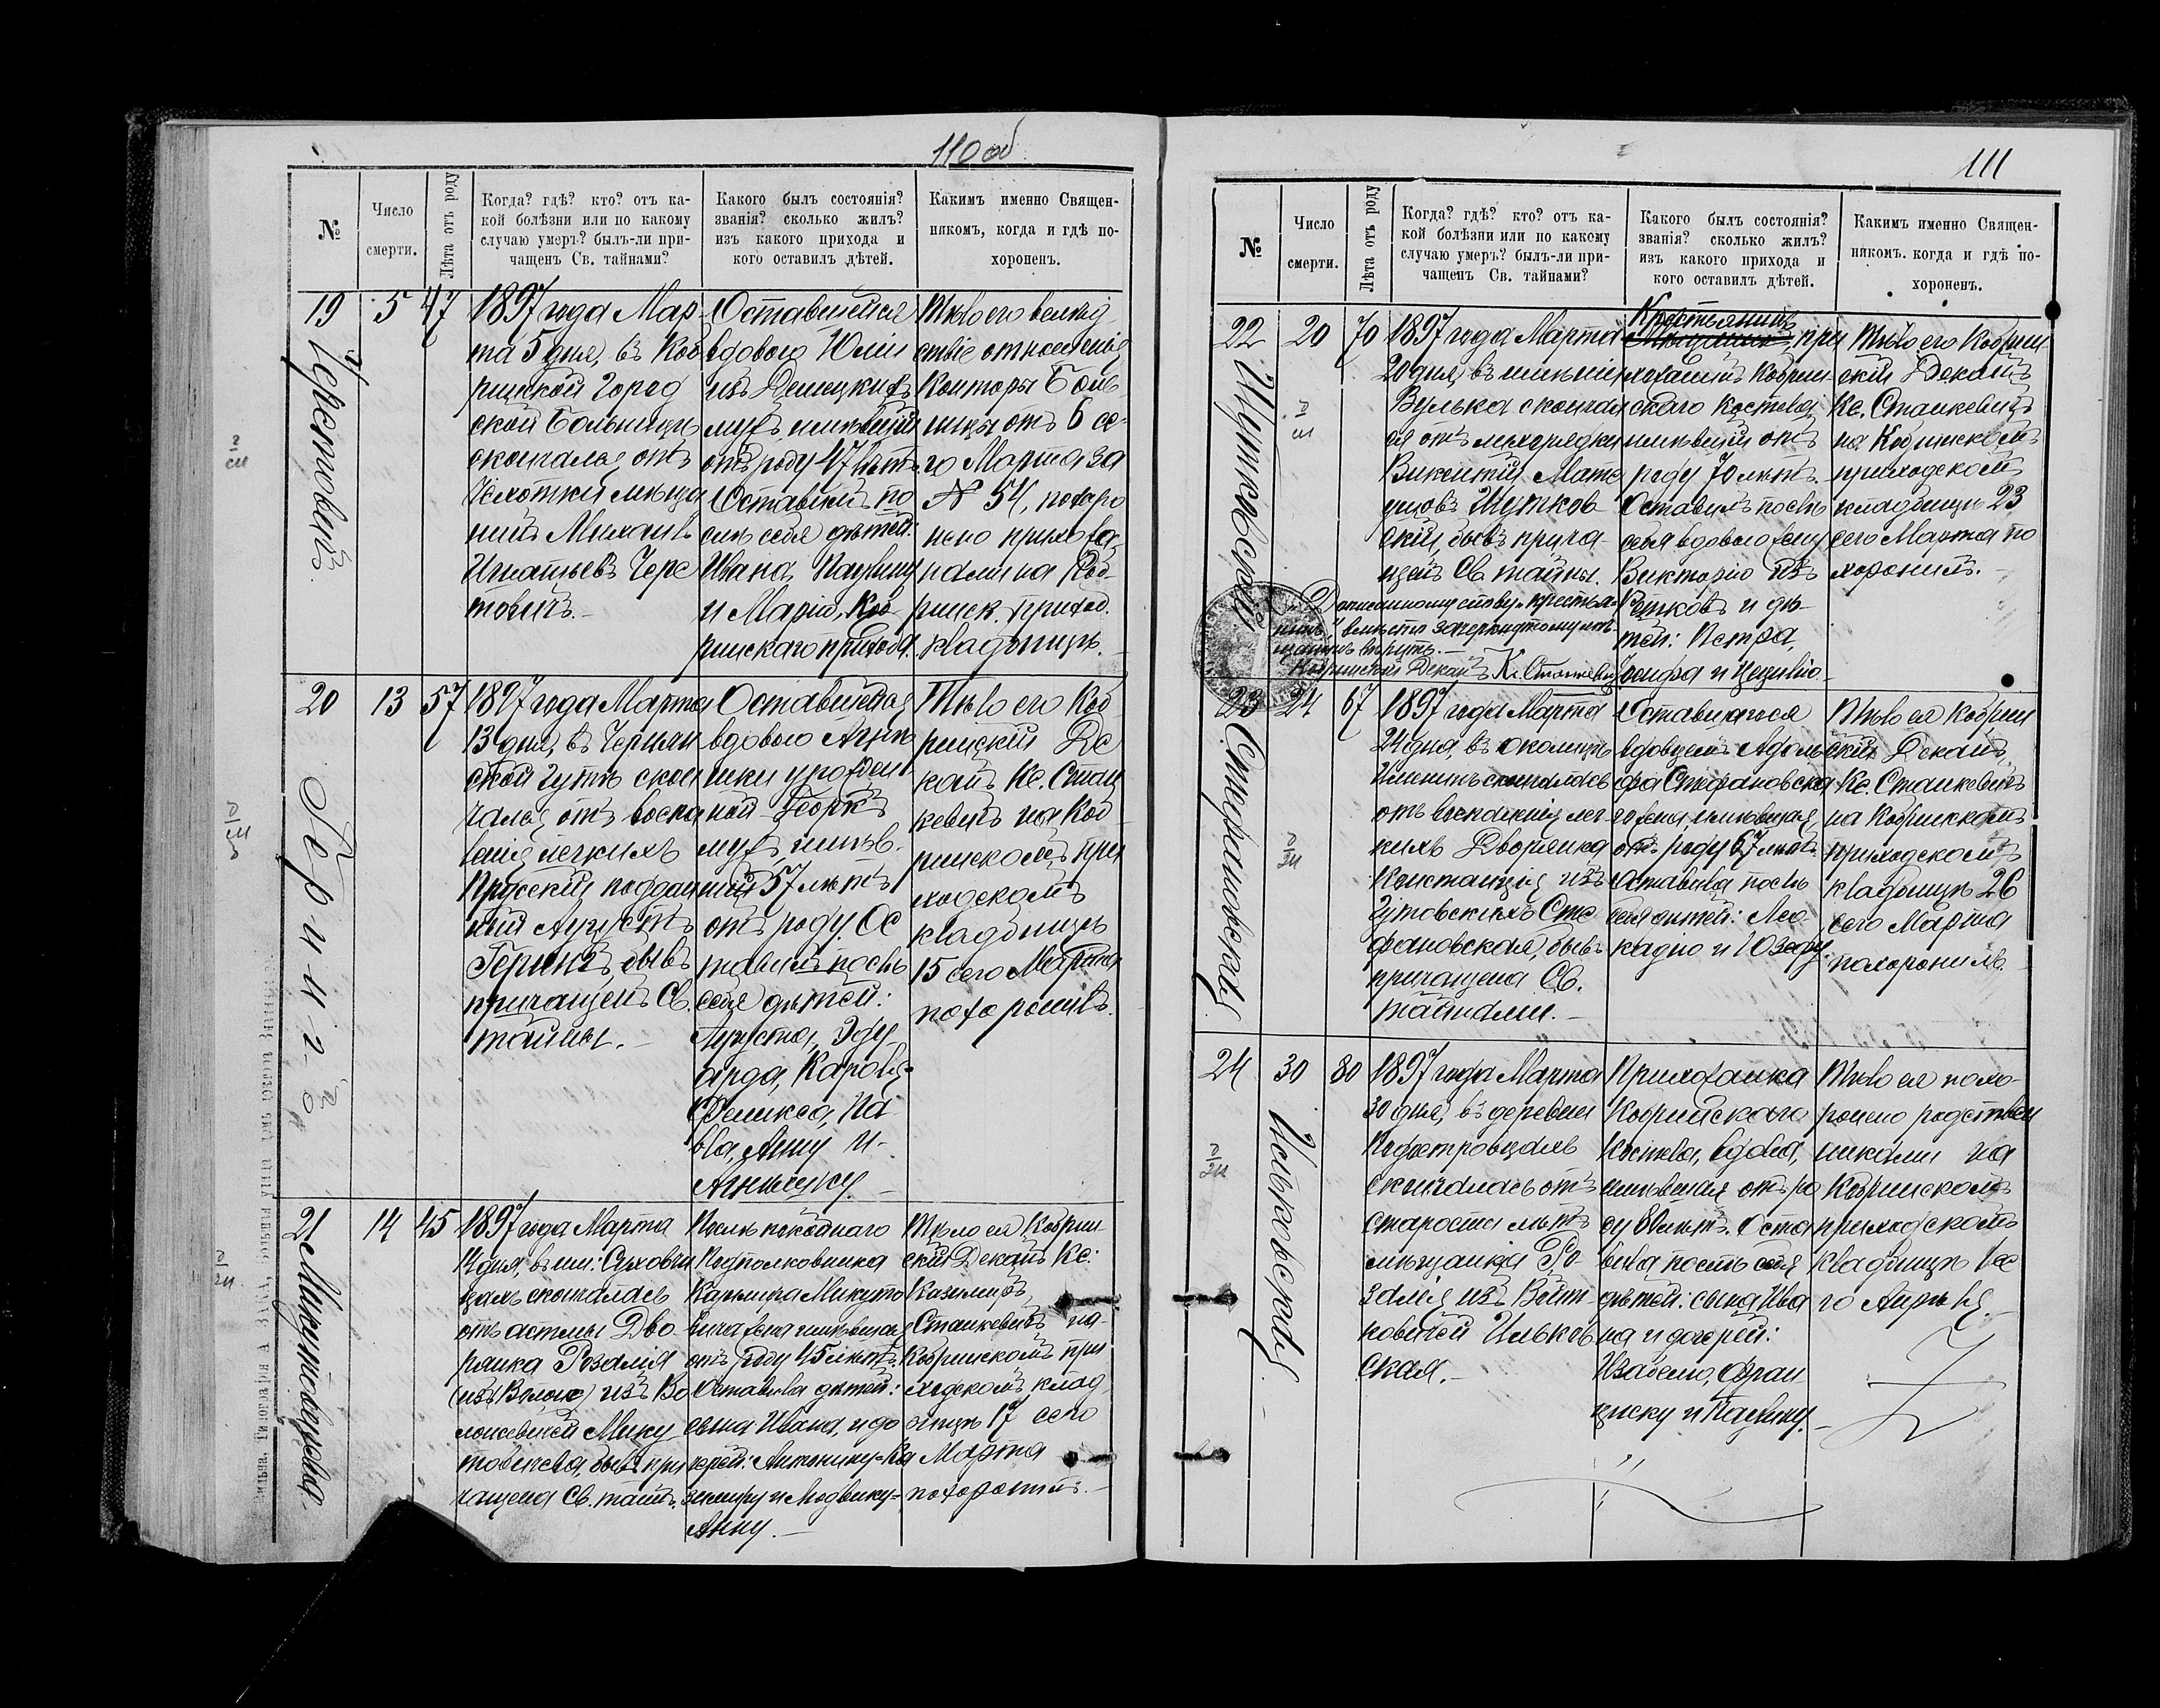 110 об
№
Число
смерти.
Лѣта отъ роду
Когда? гдѣ? кто? отъ ка-
кой болѣзни или по какому
случаю умеръ? былъ-ли при-
чащенъ Св. тайнами?
Какого былъ состоянія?
званія? сколько жилъ?
изъ какого прихода и
кого оставилъ дѣтей.
Какимъ именно Священ-
никомъ, когда и гдѣ по-
хороненъ.
19
Черетовичъ.
5
47
1897 года Мар
та 5 дня, въ Коб
ринской Город
ской Больницѣ
скончался отъ
чахотки мѣща
нинъ Михаилъ
Игнатьевъ Чере
товичъ.
Оставшейся
вдовою Юліи
изъ Демецкихъ
мужъ, имѣвшій
отъ роду 47 лѣтъ.
Оставилъ по
слѣ себя дѣтей:
Ивана, Павлину
и Марію, Коб
ринскаго прихода.
Тѣло его вслѣд
ствіе отношенія
Конторы Боль
ницы отъ 6 се-
го Марта за
№ 54, похоро
нено прихожа
нами на Коб-
ринск. приход.
кладбищѣ.
20
Герингъ
13
57
1897 года Марта
13 дня, въ
скончался отъ воспа
ленія легкихъ
Прусскій поддан
ный Августъ
Герингъ, бывъ
причащенъ Св.
тайны.
Оставшейся
вдовою Агнѣ
шки урожден
ной
мужъ, имѣв.
шій 57 лѣтъ
отъ роду. Ос
тавилъ послѣ
себя дѣтей:
Августа, Эду
арда, Кароля
Феликса, Па
вла, Анну и
Агнешку.
Тѣло его Коб
ринскій Де
канъ Кс. Стан
кевичъ на Коб
ринскомъ при
ходскомъ
кладбищѣ
15 сего Марта
похоронилъ.
21
Микутовичова.
14
45
1897 года Марта
14 дня, въ им: Суховчи
цахъ скончалась
отъ астмы Дво-
рянка Розалія
изъ Во
лонсевичей Мику
товичева, бывъ при
чащена Св. тайн.
Послѣ покойнаго
Подполковника
Микуто
вича жена имѣвшая
отъ роду 45 лѣтъ.
Оставила дѣтей:
сына Ивана, и до
черей: Антонину-Ка
зимиру и Людвику-
Анну.
Тѣло ея Кобрин
скій Деканъ Кс:
Казимиръ
Станкевичъ на
Кобринскомъ при
ходскомъ клад
бищѣ 17 сего
Марта
похоронилъ.
111
№
Число
смерти.
Лѣта отъ роду
Когда? гдѣ? кто? отъ ка-
кой болѣзни или по какому
случаю умеръ? былъ-ли при-
чащенъ Св. тайнами?
Какого былъ состоянія?
званія? сколько жилъ?
изъ какого прихода и
кого оставилъ дѣтей.
Какимъ именно Священ-
никомъ. когда и гдѣ по-
хороненъ.
22
Шутковскій
20
70
1897 года Марта
20 дня, въ имѣніи
Вулька скончал
ся отъ лихорадки
Викентій Мате
ушовъ Шутков-
скій, бывъ прича-
щенъ Св. тайны.
Крестьянинъ
при
хожанинъ Кобрин-
скаго Костела,
имѣвшій отъ
роду 70 лѣтъ.
Оставилъ послѣ
себя вдовою жену
Викторію изъ
и дѣ-
тей: Петра,
Іосифа и Цецилію.
Тѣло его Кобрин-
скій Деканъ
Кс. Станкевичъ
на Кобринскомъ
приходскомъ
кладбищѣ 23
сего Марта по
хоронилъ.
Дописанному слову „крестья-
нинъ“ вмѣсто зачеркнутому мѣ-
щанинъ вѣрить.
Кобринскій Деканъ К. Станкевичъ
23
Стефановская
24
67
1897 года Марта
24 дня, въ околицѣ
скончалась
отъ воспаленія лег-
кихъ Дворянка
Констанція изъ
Гутовскихъ Сте
фановская, бывъ
причащена Св.
тайнами.
Оставшагося
вдовцемъ Адоль
фа Стефановска
го жена, имѣвшая
отъ роду 67 лѣтъ.
Оставила послѣ
себя дѣтей: Лео-
кадію и Юзефу.
Тѣло ея Кобрин
скій Деканъ
Кс. Станкевичъ
на Кобринскомъ
приходскомъ
кладбищѣ 26
сего Марта
похоронилъ.
24
Ильковская.
30
80
1897 года Марта
30 дня, въ деревни
скончалась отъ
старости лѣтъ
мѣщанка Ро-
залія изъ Войт-
ковичей Ильков
ская.
Прихожанка
Кобринскаго
Костела, вдова,
имѣвшая отъ ро
ду 80 лѣтъ. Оста
вила послѣ себя
дѣтей: сына Ива
на и дочерей:
Изабелю, Фран
циску и Павлину.
Тѣло ея похо-
ронено родствен
никами на
Кобринскомъ
приходскомъ
кладбищѣ 1 се
го Апрѣля.